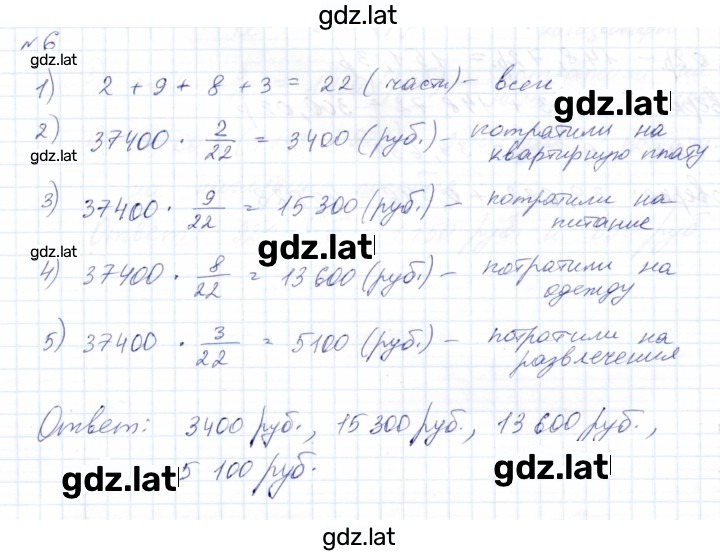 gdz.lat
№6
1) 2 + 9 + 8 + 3 = 22 (части) - всего
gdz.lat
2) 37400 · 2/22 = 3400 (руб.) - потратили на
квартирную плату
gdz.lat
3) 37400 · 9/22 = 15300 (руб.) - потратили на
питание
gdz.lat
gdz.lat
4) 37400 · 8/22 = 13600 (руб.) - потратили на
одежду
5) 37400 · 3/22 = 5100 (руб.) - потратили на
развлечения
Ответ: 3400 руб., 15300 руб., 13600 руб.,
5 100 руб.
gdz.lat
gdz.lat
gdz.lat